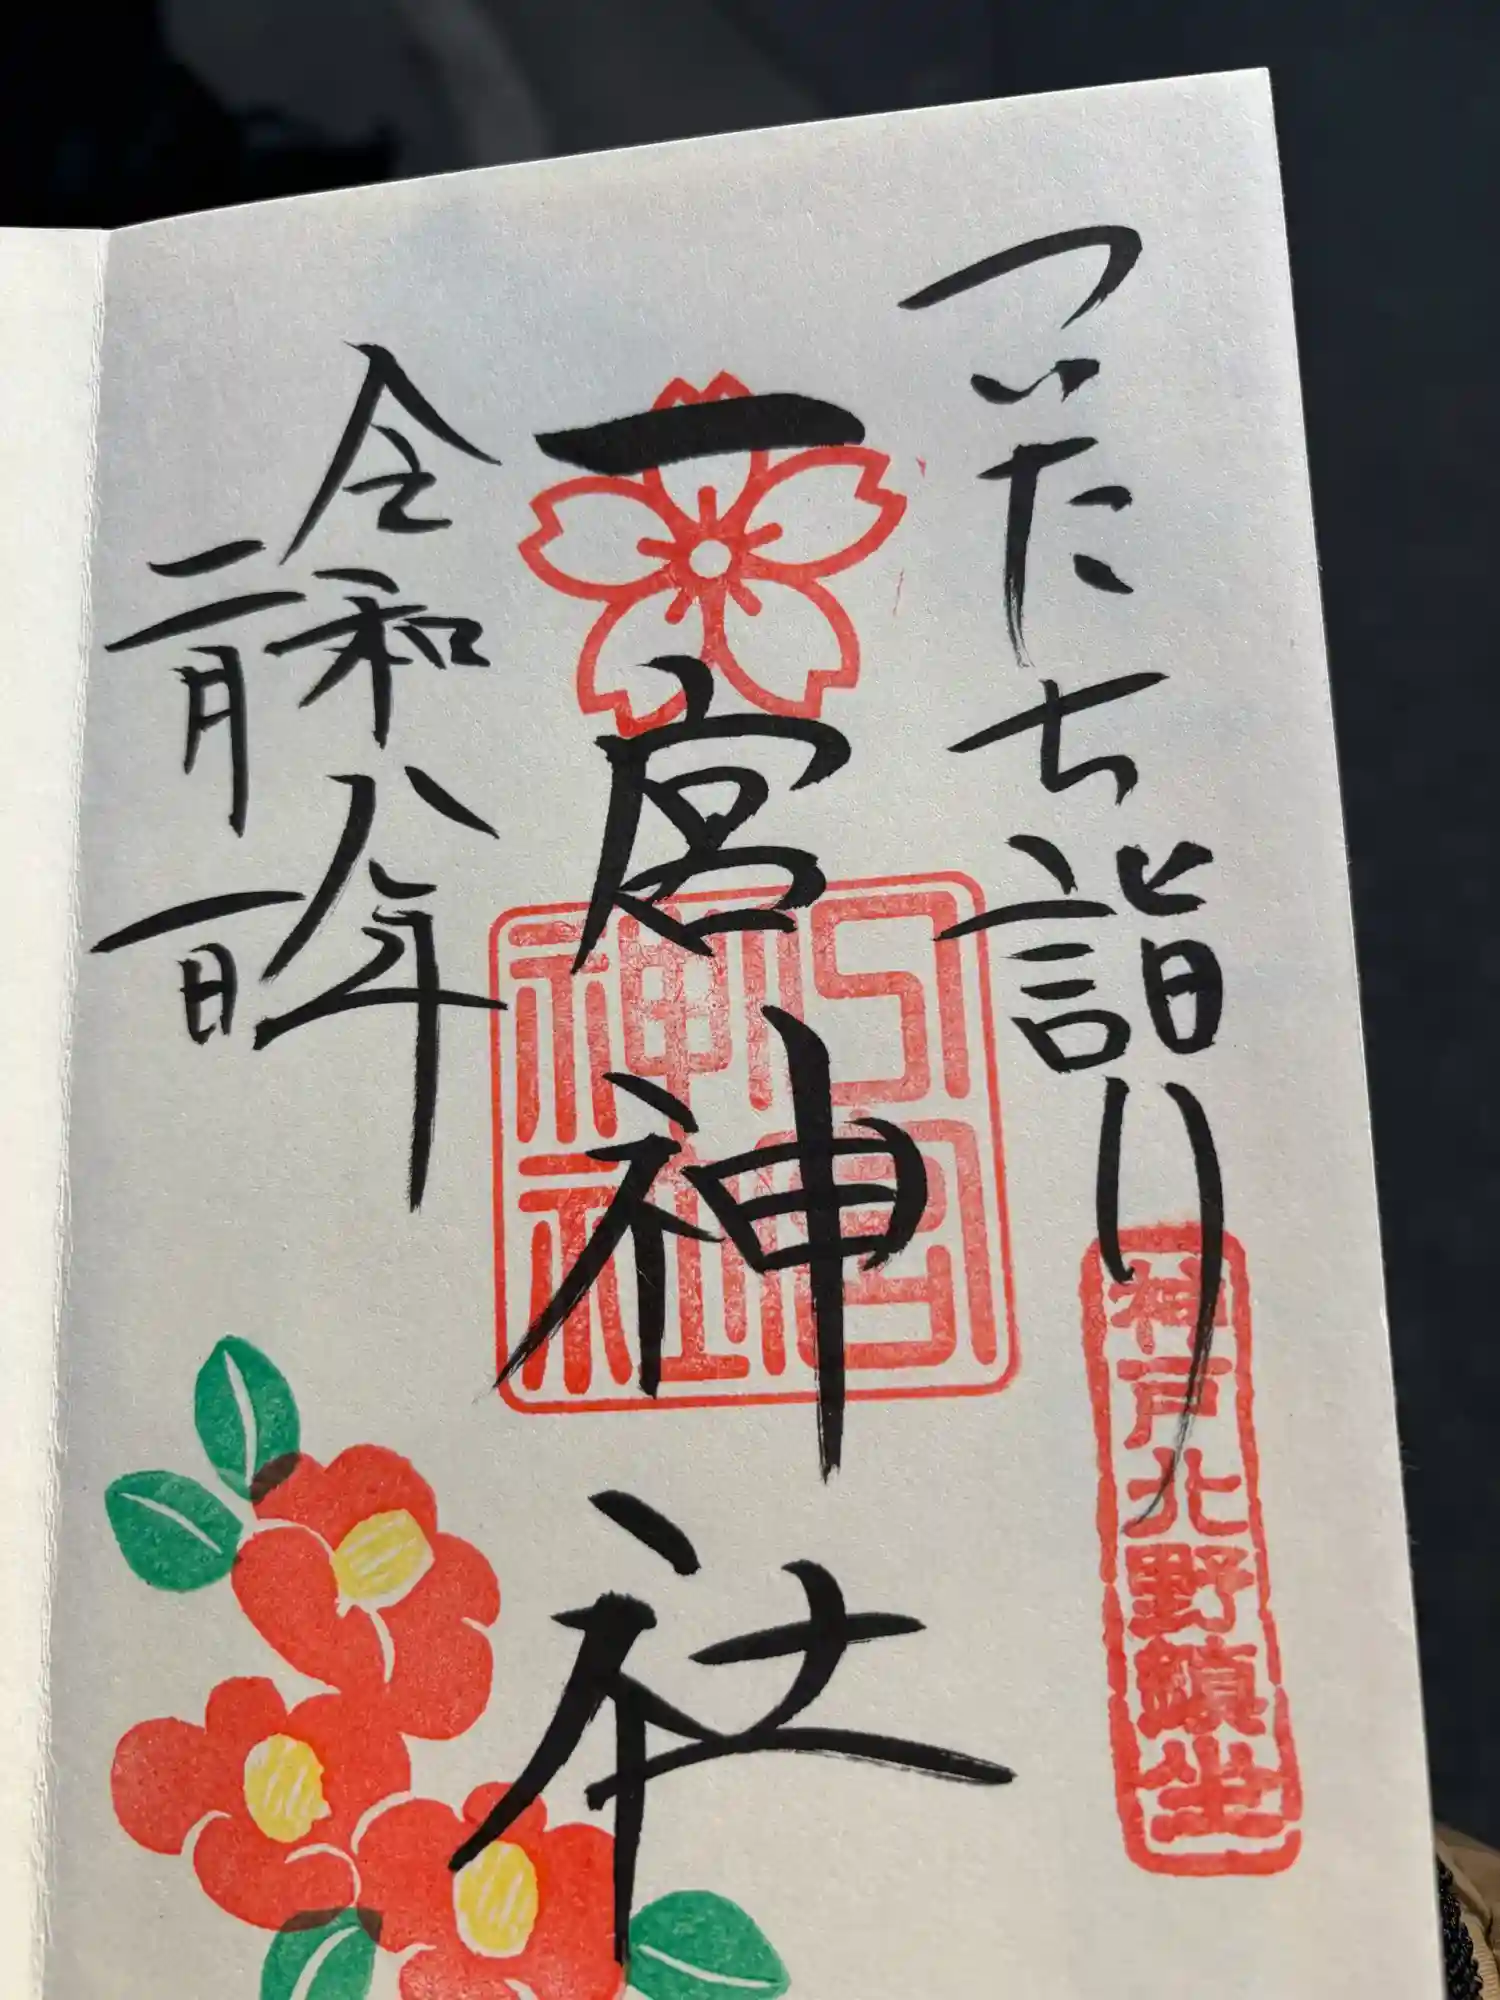 ついたち詣り
神戸北野鎮坐
一宮神社
一宮神社
令和八年
二月一日